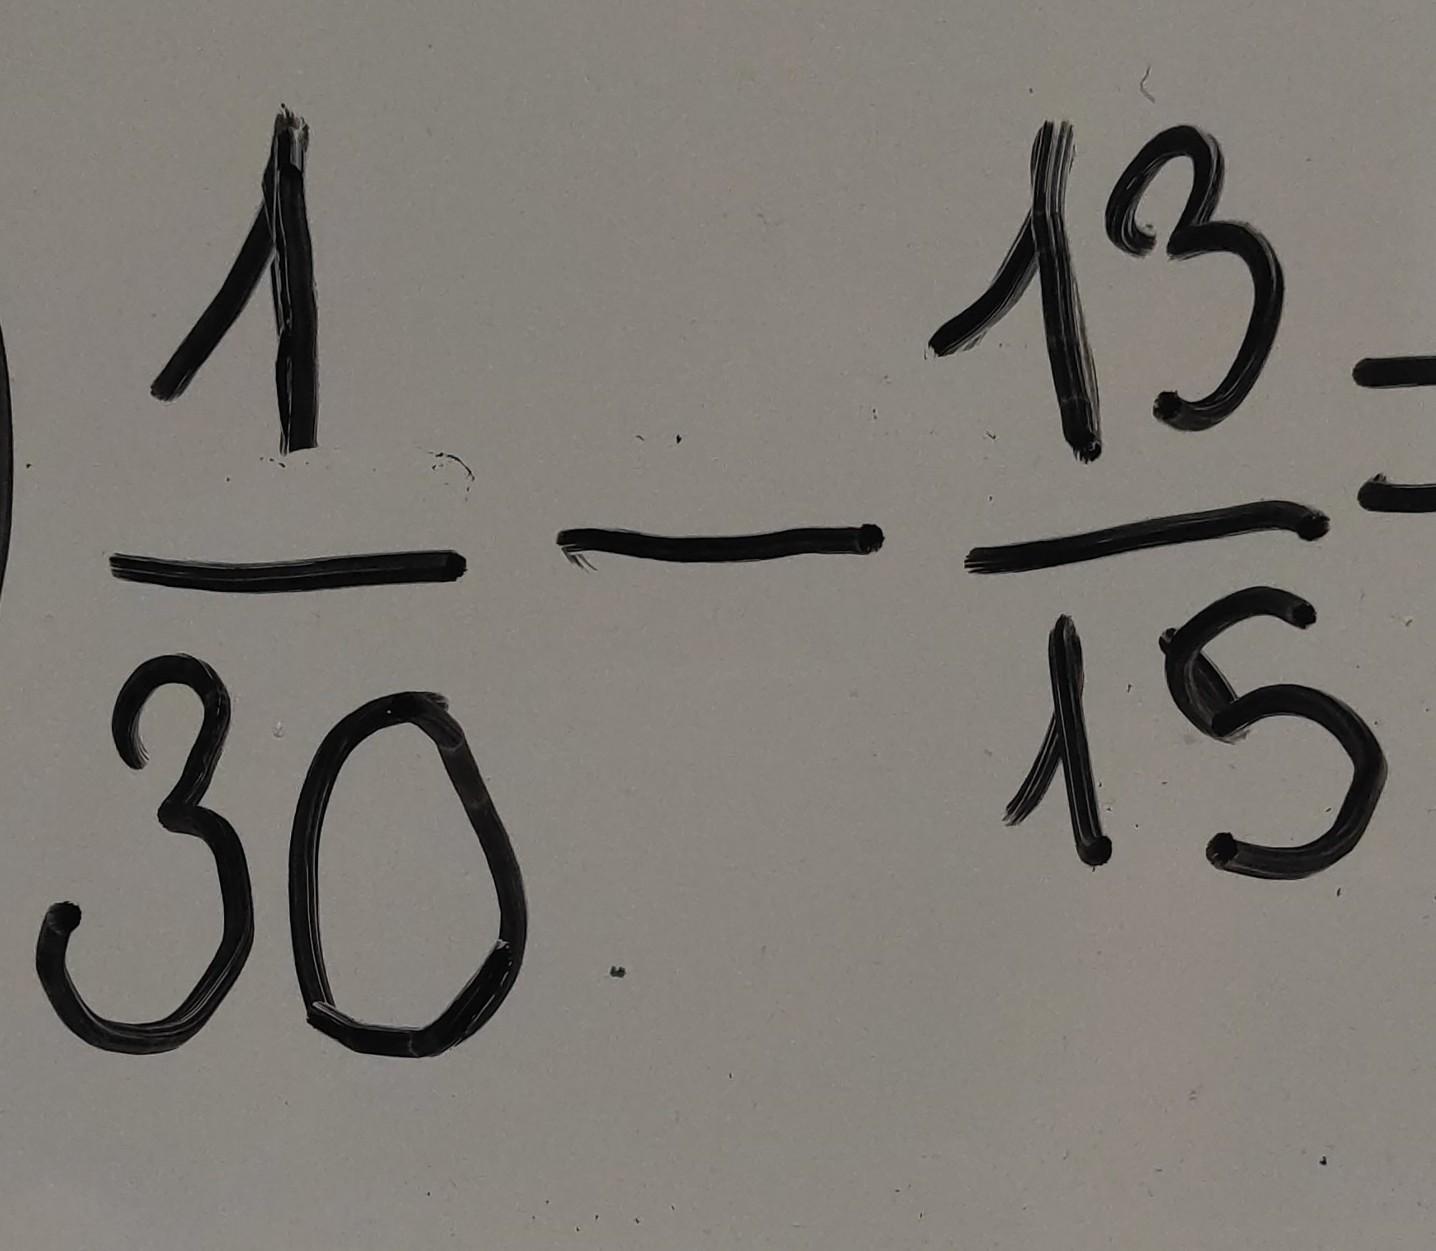 ) 1/30 - 13/15 =